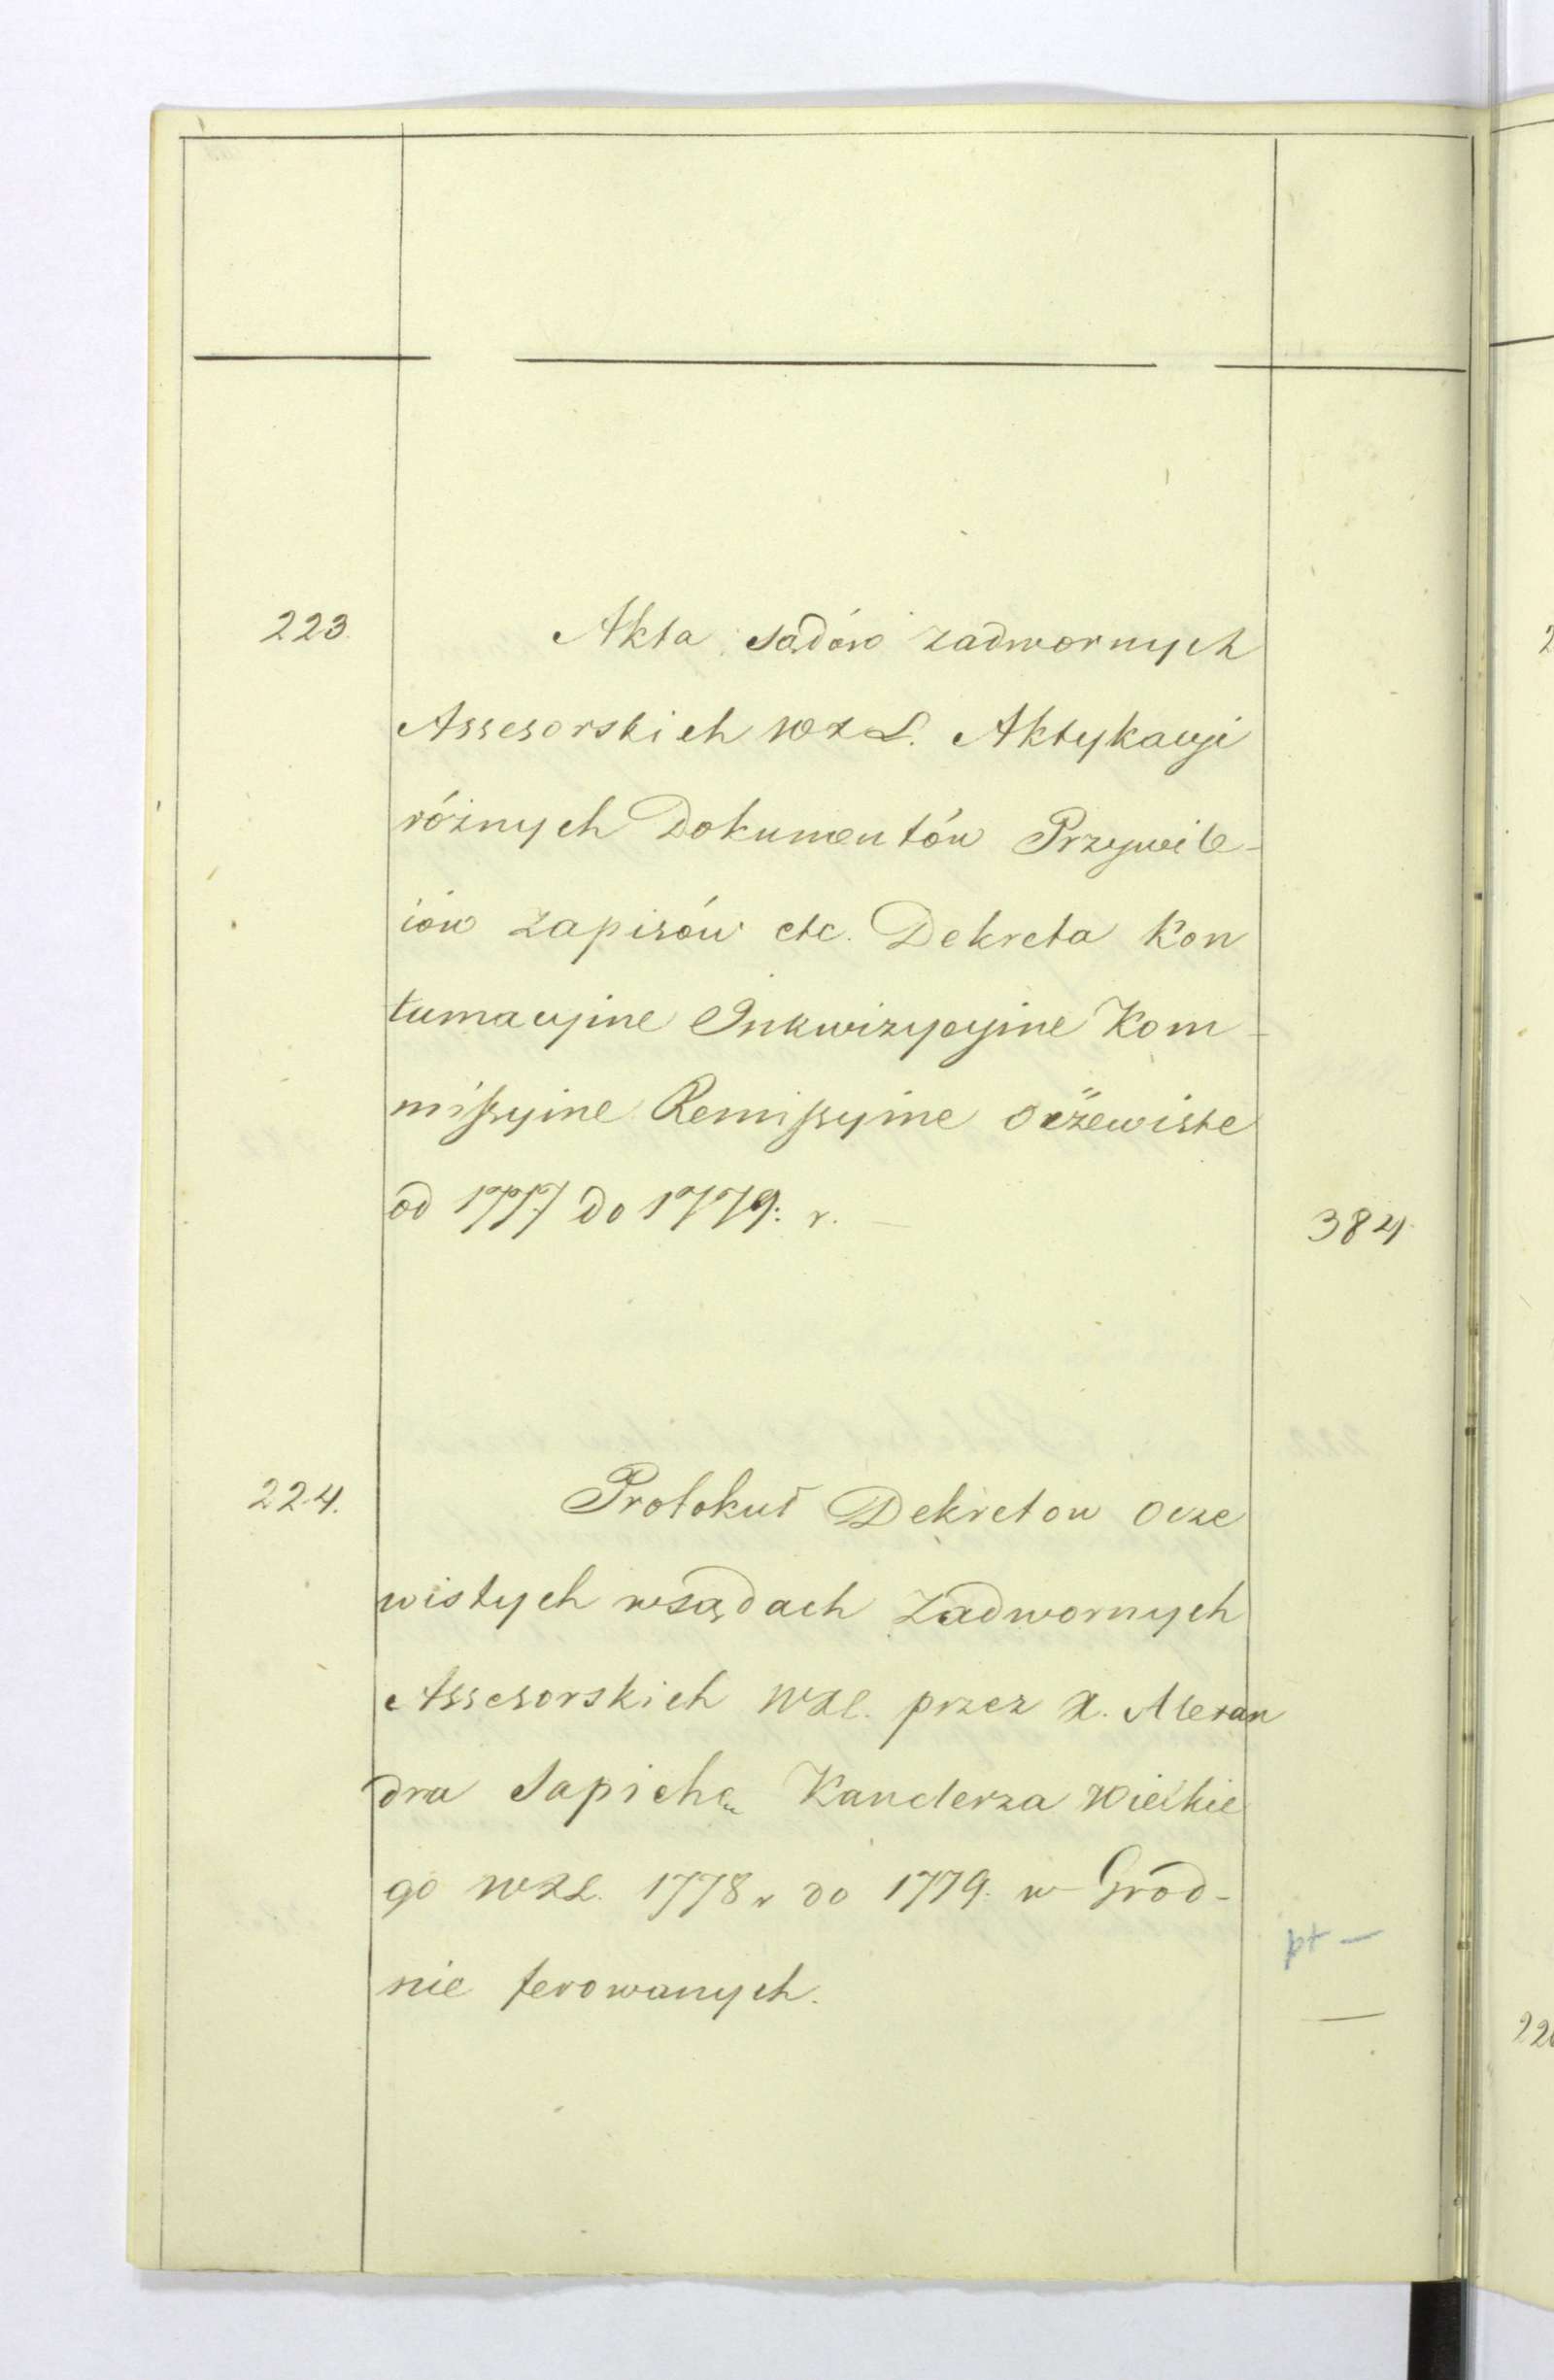 223.
Akta sądów zadwornych
Assesorskich WXL. Aktykacyi
różnych Dokumentów Przywile-
iów zapisów etc. Dekreta Kon
tumacyjne Inkwizycyjne Kom-
missyine Remissyine oczewiste
od 1777 do 1779. r. —
384
224.
Protokuł Dekretow ocze
wistych w sądach Zadwornych
Assesorskich WXL. przez X. Alexan
dra Sapiehę Kanclerza Wielkie
go WXL. 1778 r do 1779. w Grod-
nie ferowanych.
pt —
—